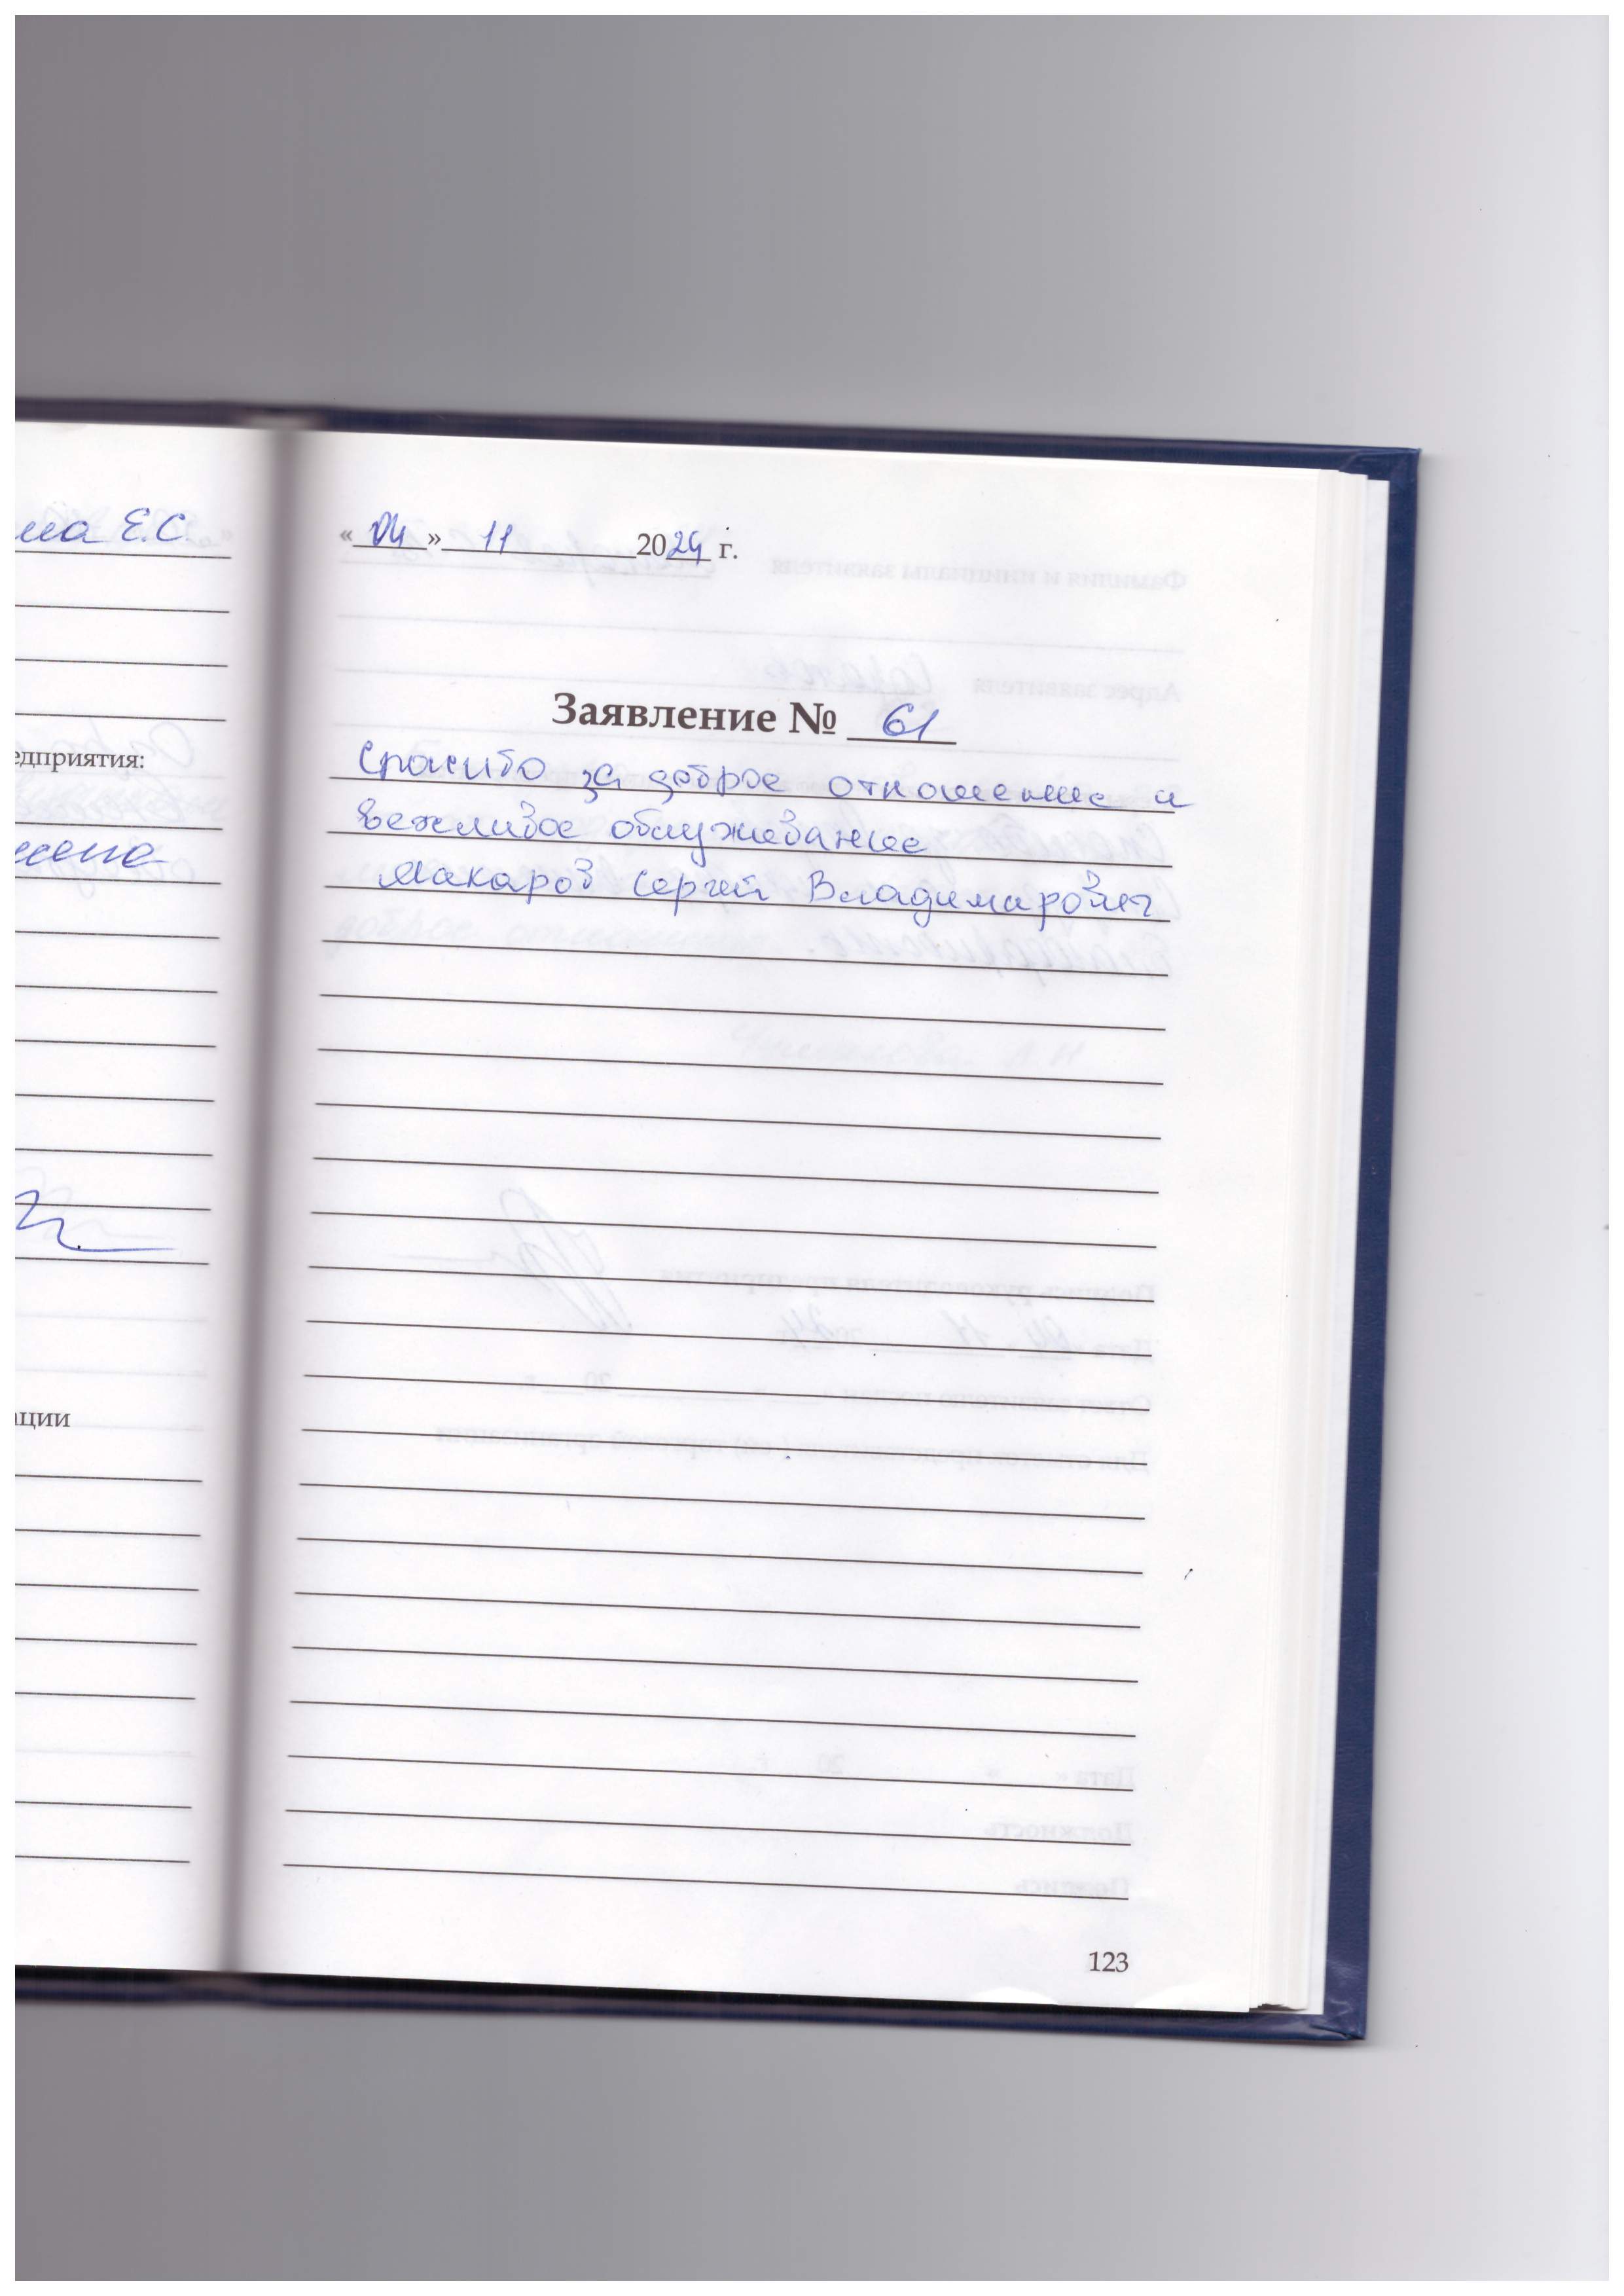 Е.С.
едприятия:
ции
«04» 11 2024 г.
Заявление № 61
Спасибо за доброе отношение и
вежливое обслуживание
Макаров Сергей Владимарович
123